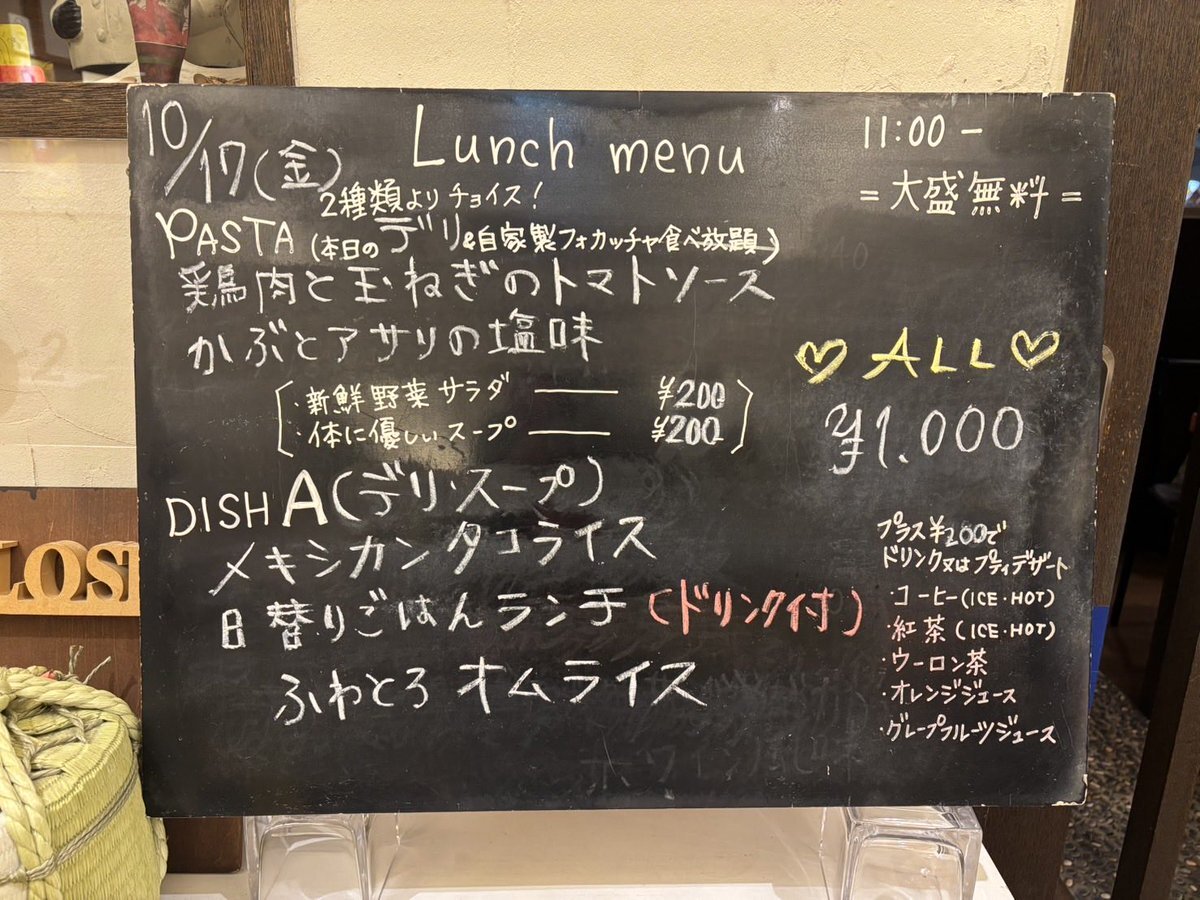 10/17(金)
Lunch menu
11:00 -
= 大盛無料 =
2種類よりチョイス!
PASTA (本日のデリ&自家製フォカッチャ食べ放題)
鶏肉と玉ねぎのトマトソース
かぶとアサリの塩味
・新鮮野菜サラダ ── ¥200
・体に優しいスープ ── ¥200
♡ ALL ♡
¥1.000
DISH A(デリ・スープ)
メキシカンタコライス
日替りごはんランチ(ドリンク付)
ふわとろ オムライス
プラス¥200で
ドリンク又はプティデザート
・コーヒー(ICE・HOT)
・紅茶(ICE・HOT)
・ウーロン茶
・オレンジジュース
・グレープフルーツジュース
LOS